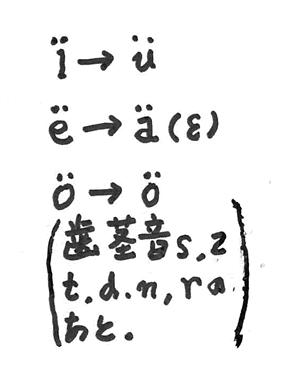 ï→ü
ë→ä(ε)
ö→ö
(歯茎音s,z
t,d,n,rの
あと。)